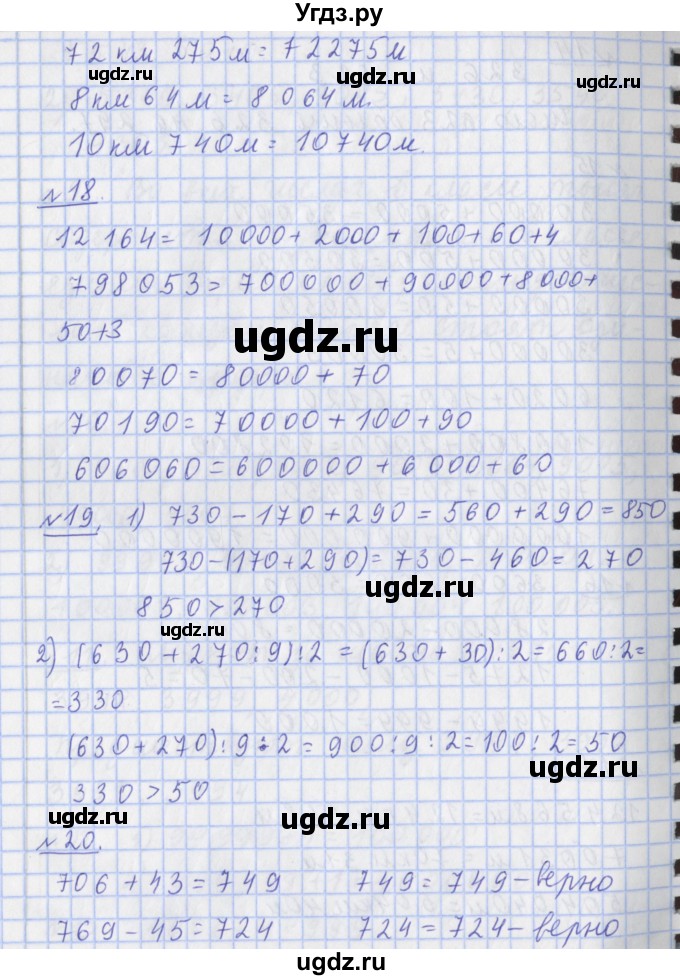 Угдз.ру
72 км 275м = 72275м
8км 64м = 8 064м.
10км 740м = 10740м.
№18.
12 164 = 10000 + 2000 + 100 + 60 + 4
798 053 = 700000 + 90000 + 8000 +
50+3
80070 = 80000 + 70
70190 = 70000 + 100 + 90
606 060 = 600000 + 6000 + 60
№19. 1) 730 - 170 + 290 = 560 + 290 = 850
730 - (170 + 290) = 730 - 460 = 270
850 > 270
2) (630 + 270 : 9) : 2 = (630 + 30) : 2 = 660 : 2 =
= 330
(630 + 270) : 9 : 2 = 900 : 9 : 2 = 100 : 2 = 50
330 > 50
№20.
706 + 43 = 749 749 = 749 - верно
769 - 45 = 724 724 = 724 - верно
ugdz.ru
ugdz.ru
ugdz.ru
ugdz.ru
ugdz.ru
ugdz.ru
ugdz.ru
ugdz.ru
ugdz.ru
ugdz.ru
ugdz.ru